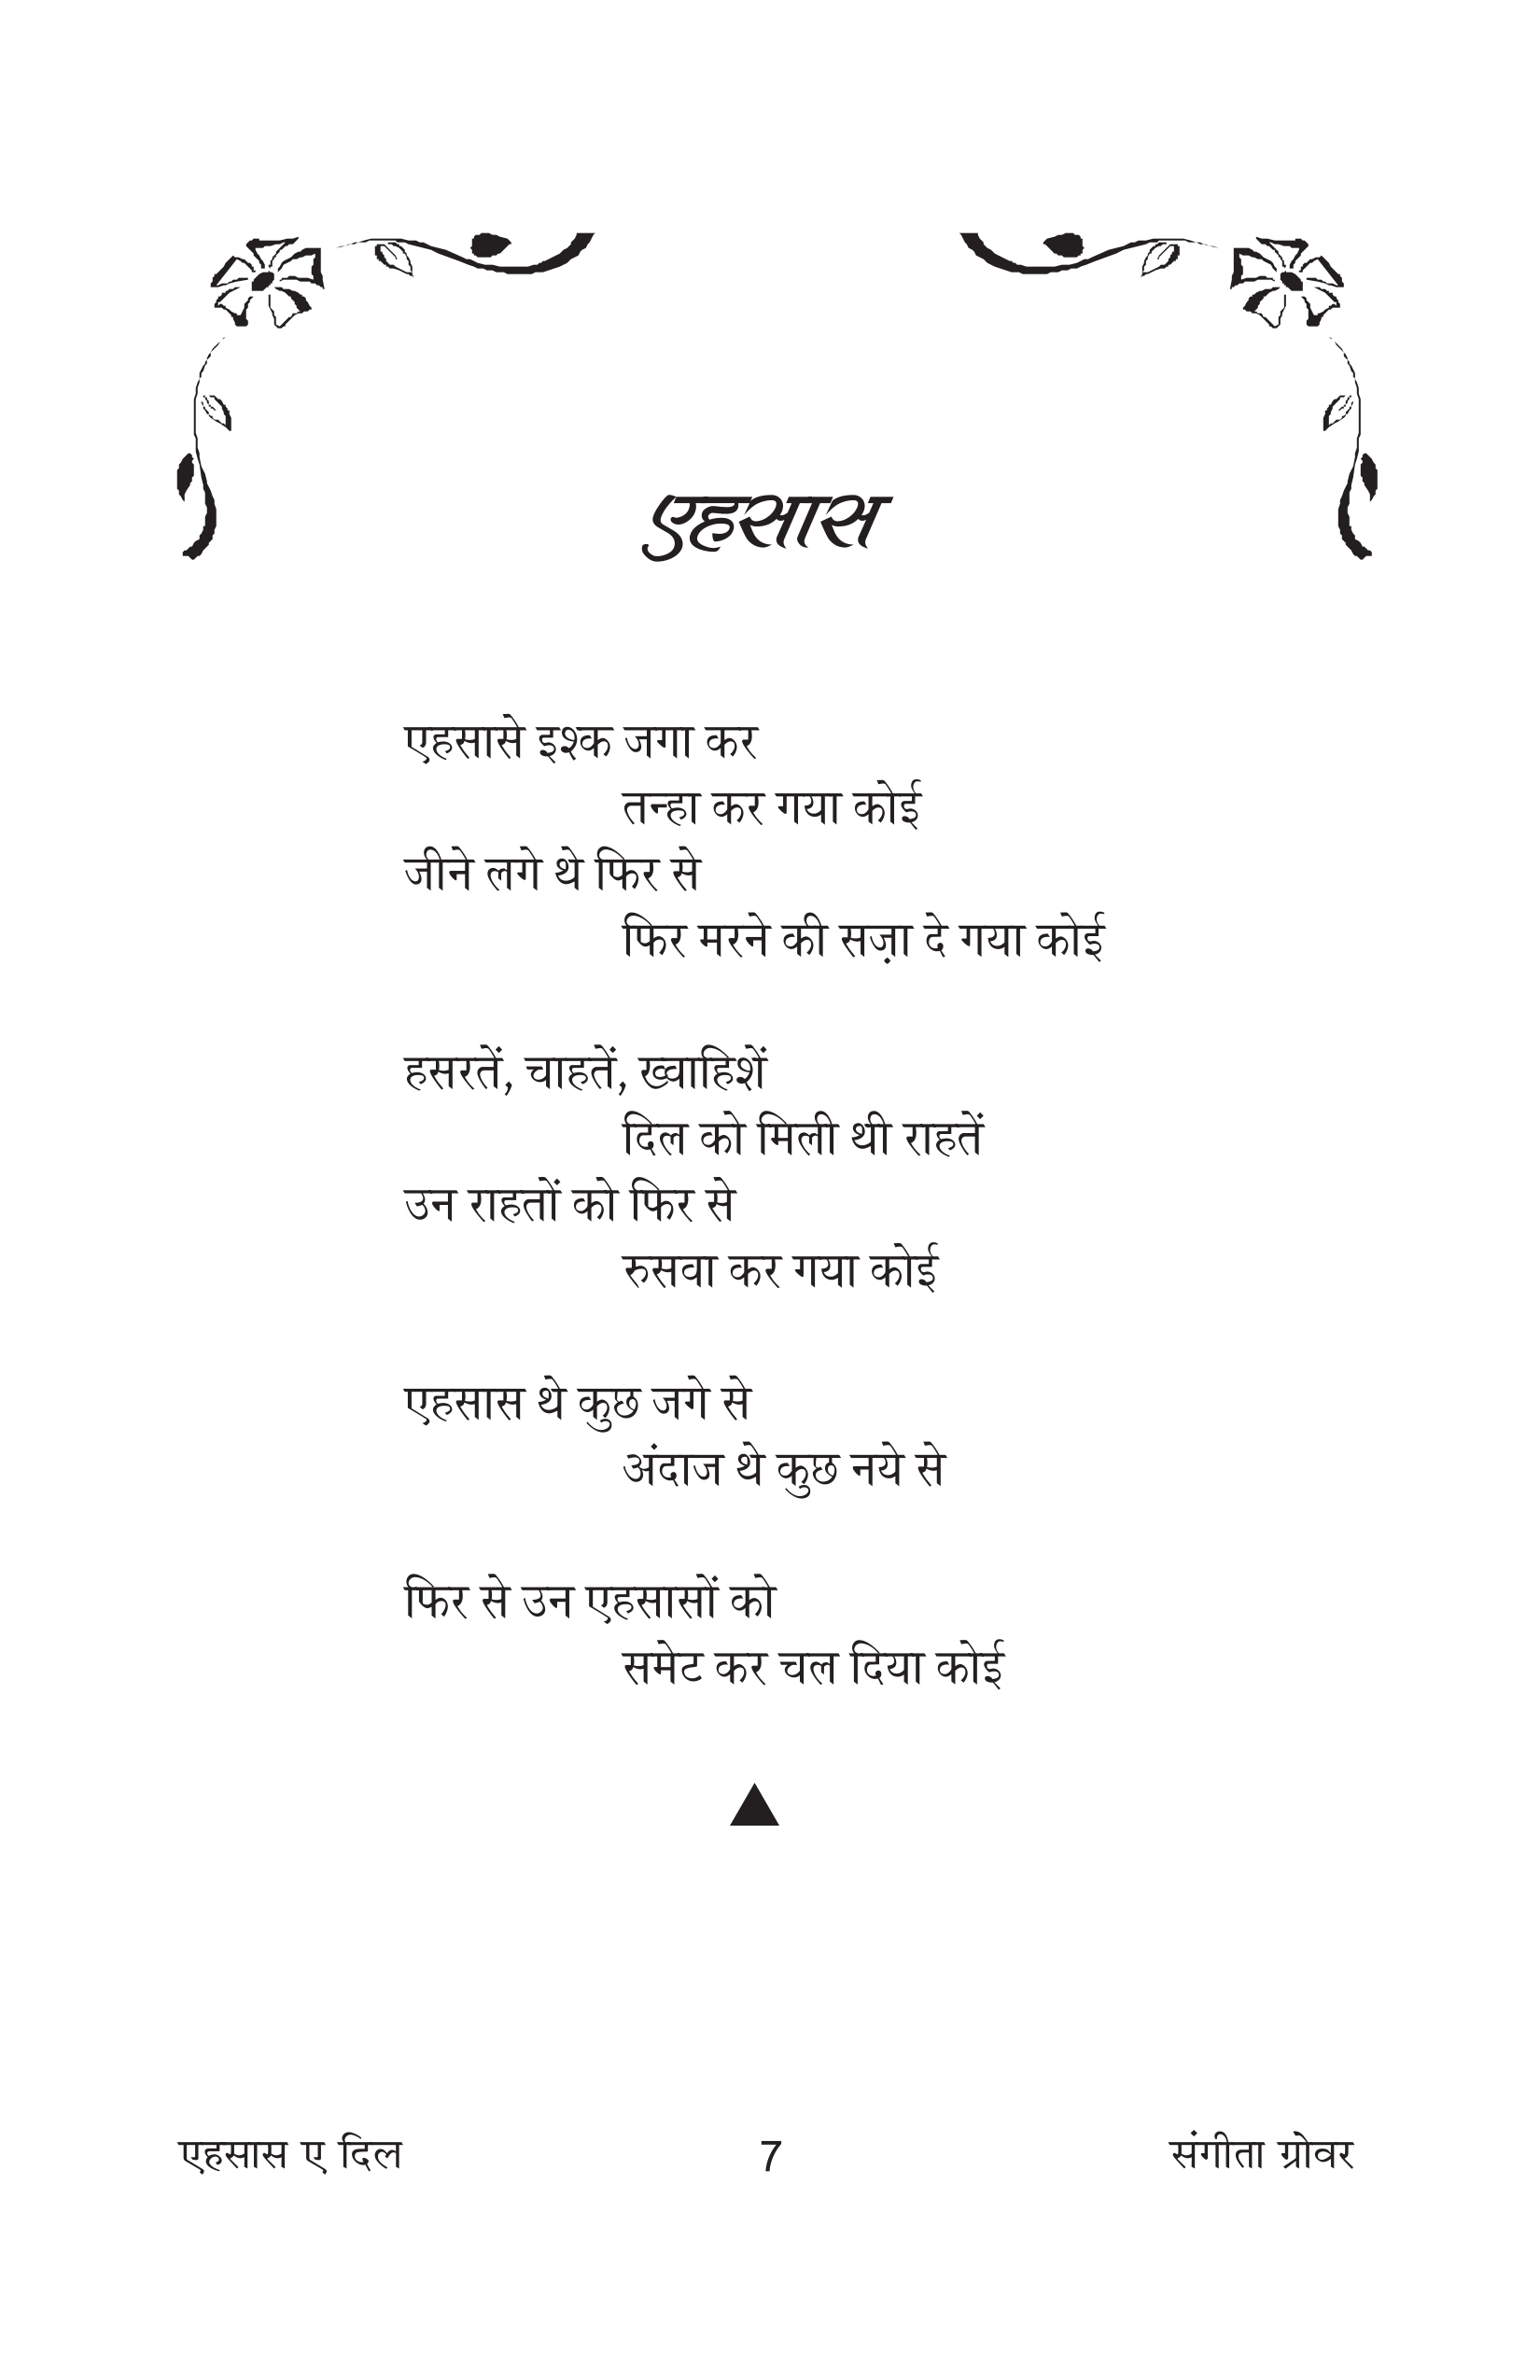 एहसास
एहसासे इश्क जगा कर
तन्हा कर गया कोई
जीने लगे थे फिर से
फिर मरने की सज़ा दे गया कोई
हसरतें, चाहतें, ख्वाहिशें
दिल को मिली थी राहतें
उन राहतों को फिर से
रुसवा कर गया कोई
एहसास थे कुछ जगे से
अंदाज थे कुछ नये से
फिर से उन एहसासों को
समेट कर चल दिया कोई
एहसास ए दिल 7 संगीता ग्रोवर